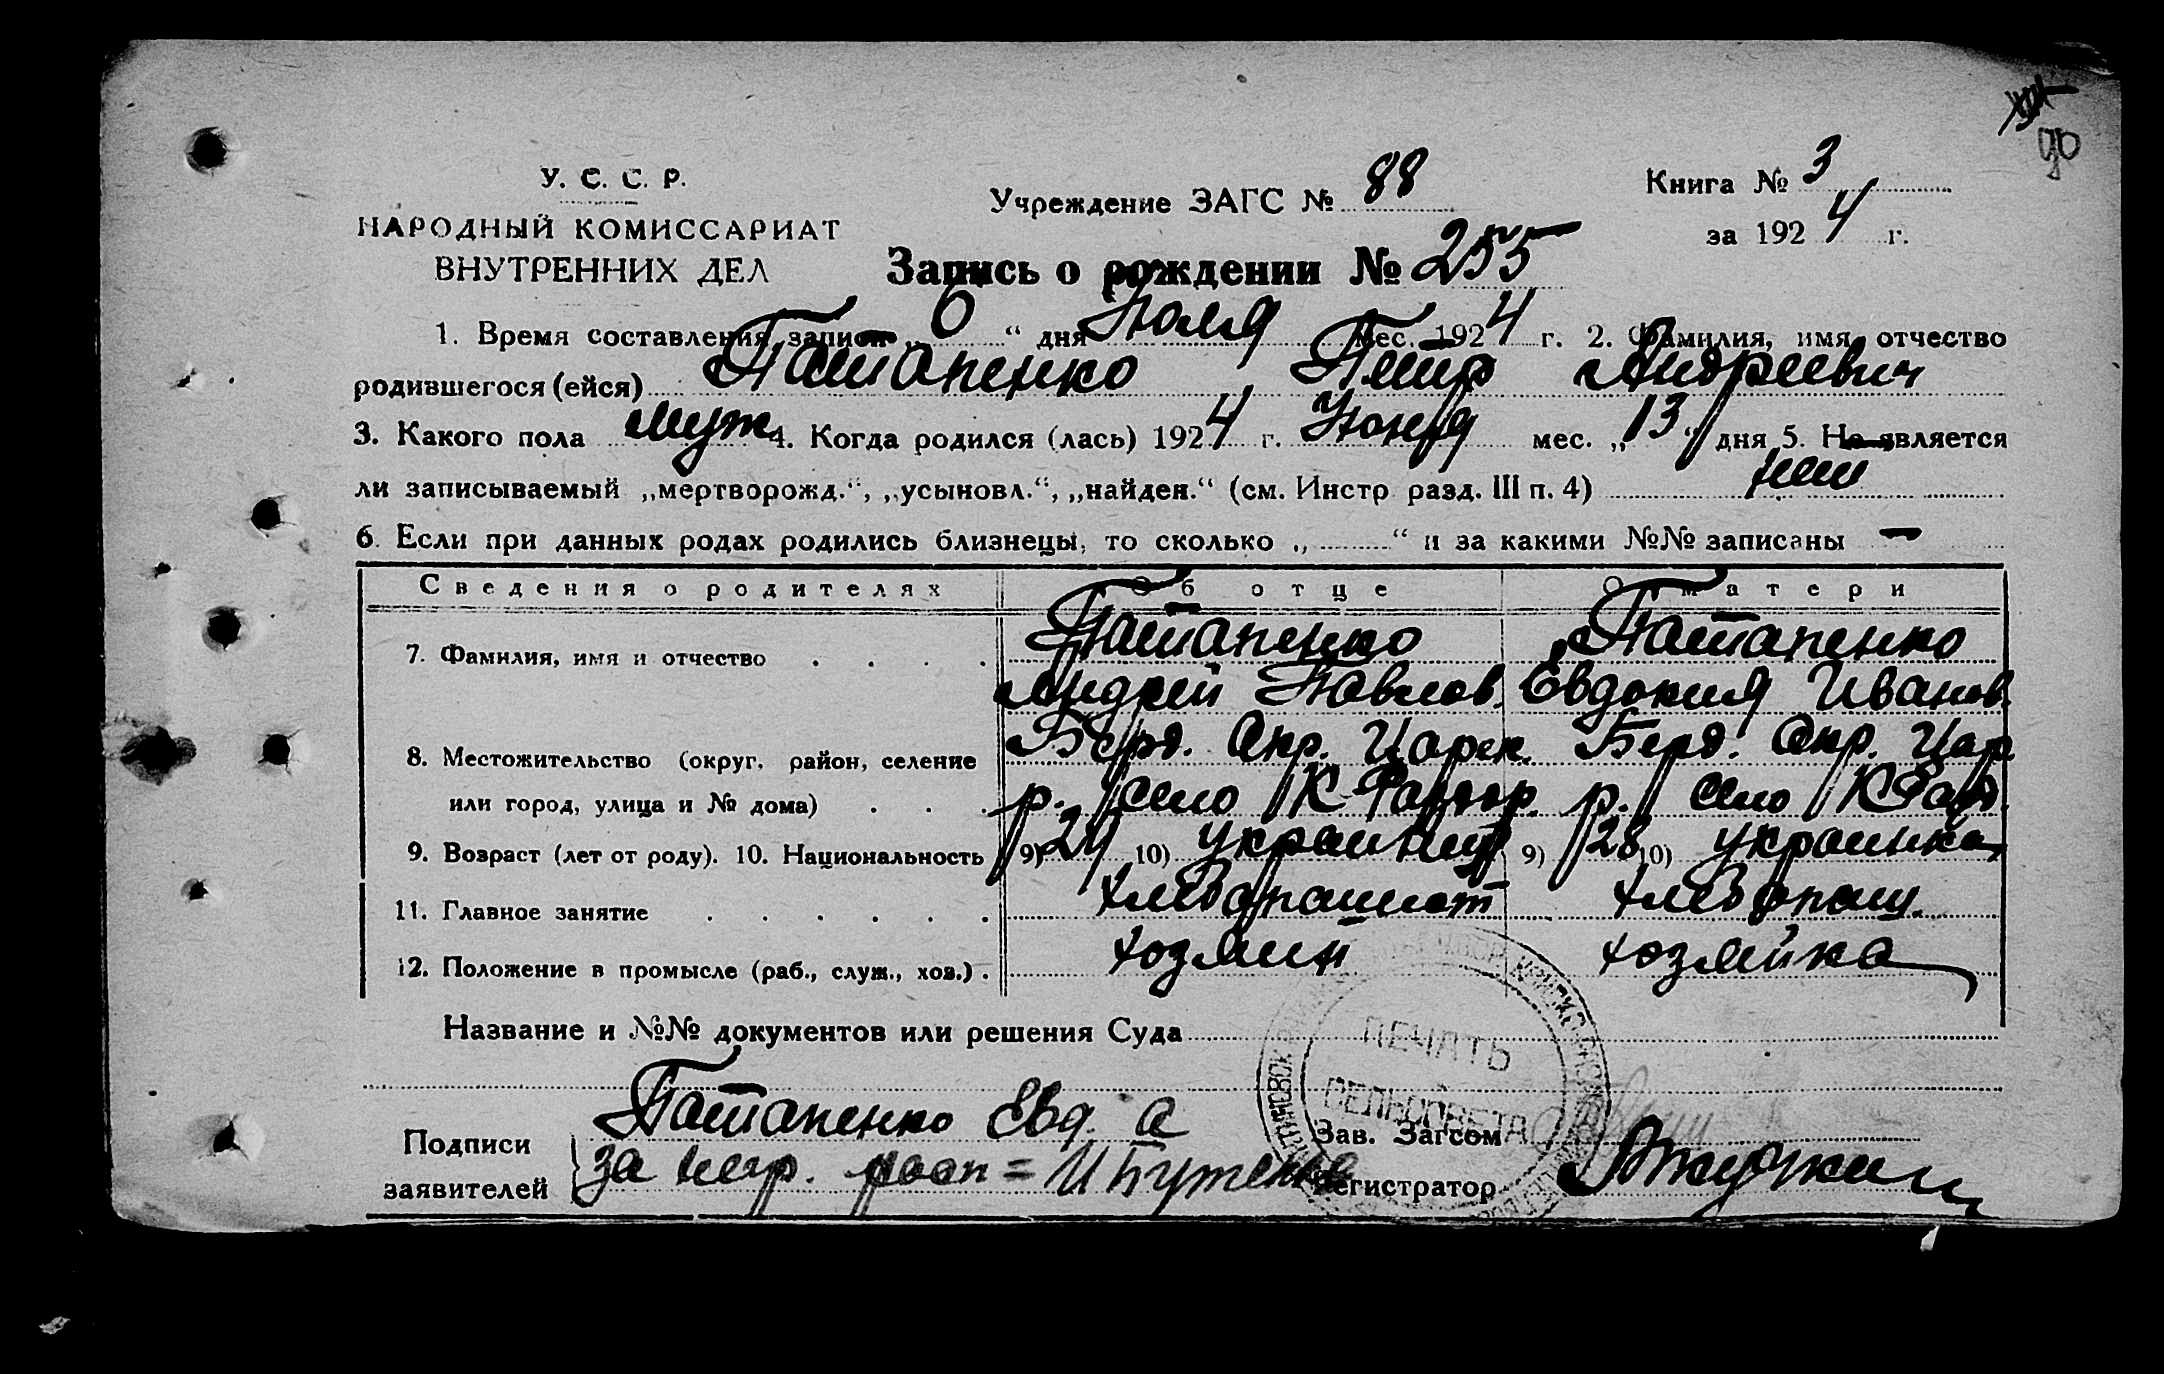 90
У. С. С. Р.
НАРОДНЫЙ КОМИССАРИАТ
ВНУТРЕННИХ ДЕЛ
Учреждение ЗАГС № 88
Книга № 3
за 1924 г.
Запись о рождении № 255
1. Время составления записи „6“ дня Июля мес. 1924 г. 2. Фамилия, имя, отчество
родившегося (ейся) Паталенко Петр Андреевич
3. Какого пола муж 4. Когда родился (лась) 1924 г. Июня мес. „13“ дня 5. Не является
ли записываемый „мертворожд.“, „усыновл.“, „найден.“ (см. Инстр разд. III п. 4) нет
6. Если при данных родах родились близнецы, то сколько „ “ и за какими №№ записаны —
Сведения о родителях Об отце О матери
7. Фамилия, имя и отчество Паталенко Паталенко
Андрей Павлов. Евдокия Иванов.
8. Местожительство (округ, район, селение Берд. Окр. Царек. Берд. Окр. Цар
или город, улица и № дома) р. село К р. село К
9. Возраст (лет от роду). 10. Национальность 9) 29 10) украинец 9) 28 10) украинка
11. Главное занятие хлебопашест хлебопаш.
12. Положение в промысле (раб., служ., хоз.) хозяин хозяйка
Название и №№ документов или решения Суда
ПЕЧАТЬ
СЕЛЬСОВЕТА
Подписи
заявителей
Паталенко Евд. а
за негр. росп =
Зав. Загсом
Регистратор